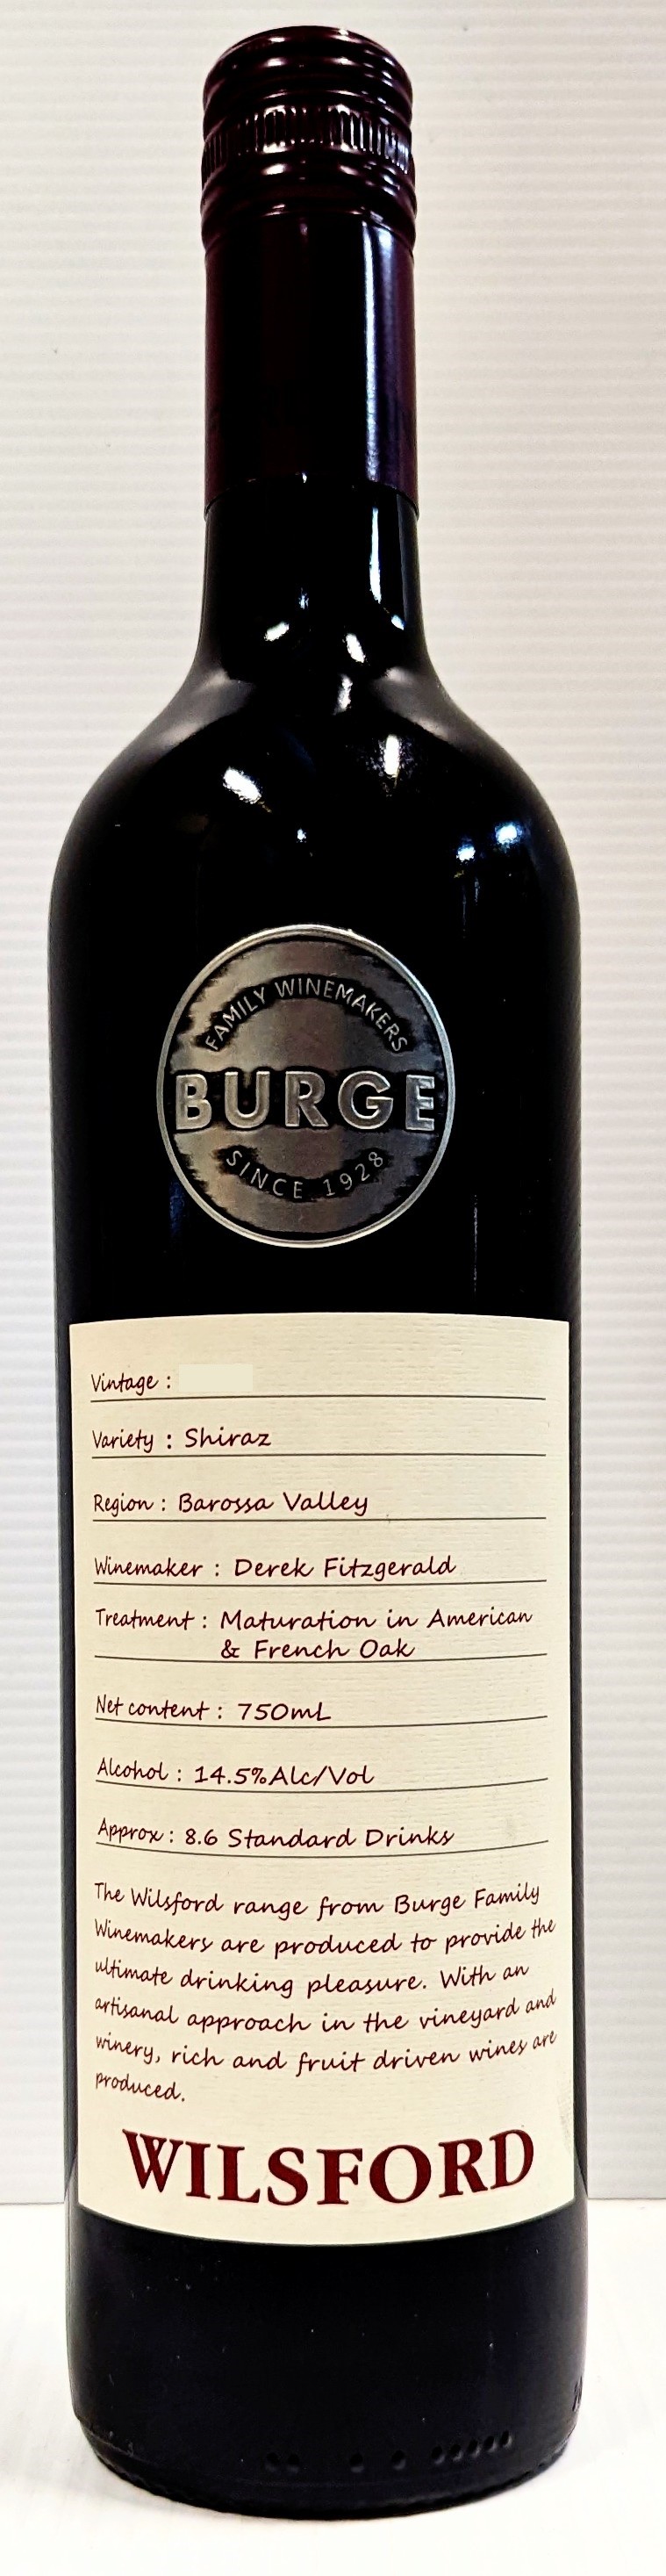 FAMILY WINEMAKERS
BURGE
SINCE 1928
Vintage :
Variety : Shiraz
Region : Barossa Valley
Winemaker : Derek Fitzgerald
Treatment : Maturation in American
& French Oak
Net content : 750mL
Alcohol : 14.5%Alc/Vol
Approx : 8.6 Standard Drinks
The Wilsford range from Burge Family
Winemakers are produced to provide the
ultimate drinking pleasure. With an
artisanal approach in the vineyard and
winery, rich and fruit driven wines are
produced.
WILSFORD